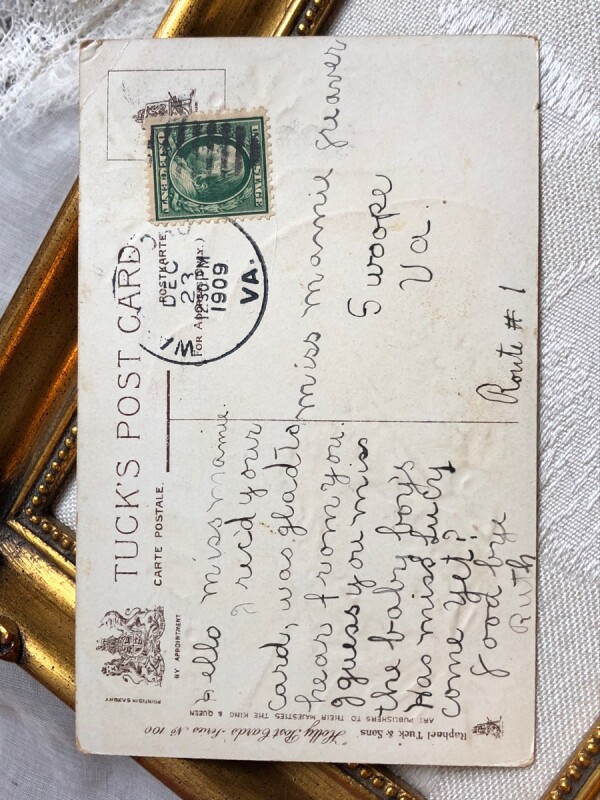 TUCK'S POST CARD
CARTE POSTALE.
POSTKARTE
(For Address Only.)
BY APPOINTMENT
PRINTED IN SAXONY
Raphael Tuck & Sons "Holly" Post Cards Series No 100
ART PUBLISHERS TO THEIR MAJESTIES THE KING & QUEEN
DEC
23
12:30PM
1909
VA.
Hello miss mamie.
I rec'd your
card, was glad to
hear from you.
I guess you miss
the baby boys
Has miss Lucy
come yet?
Good bye
Ruth
miss mamie greaver
Swoope
Va.
Route # 1